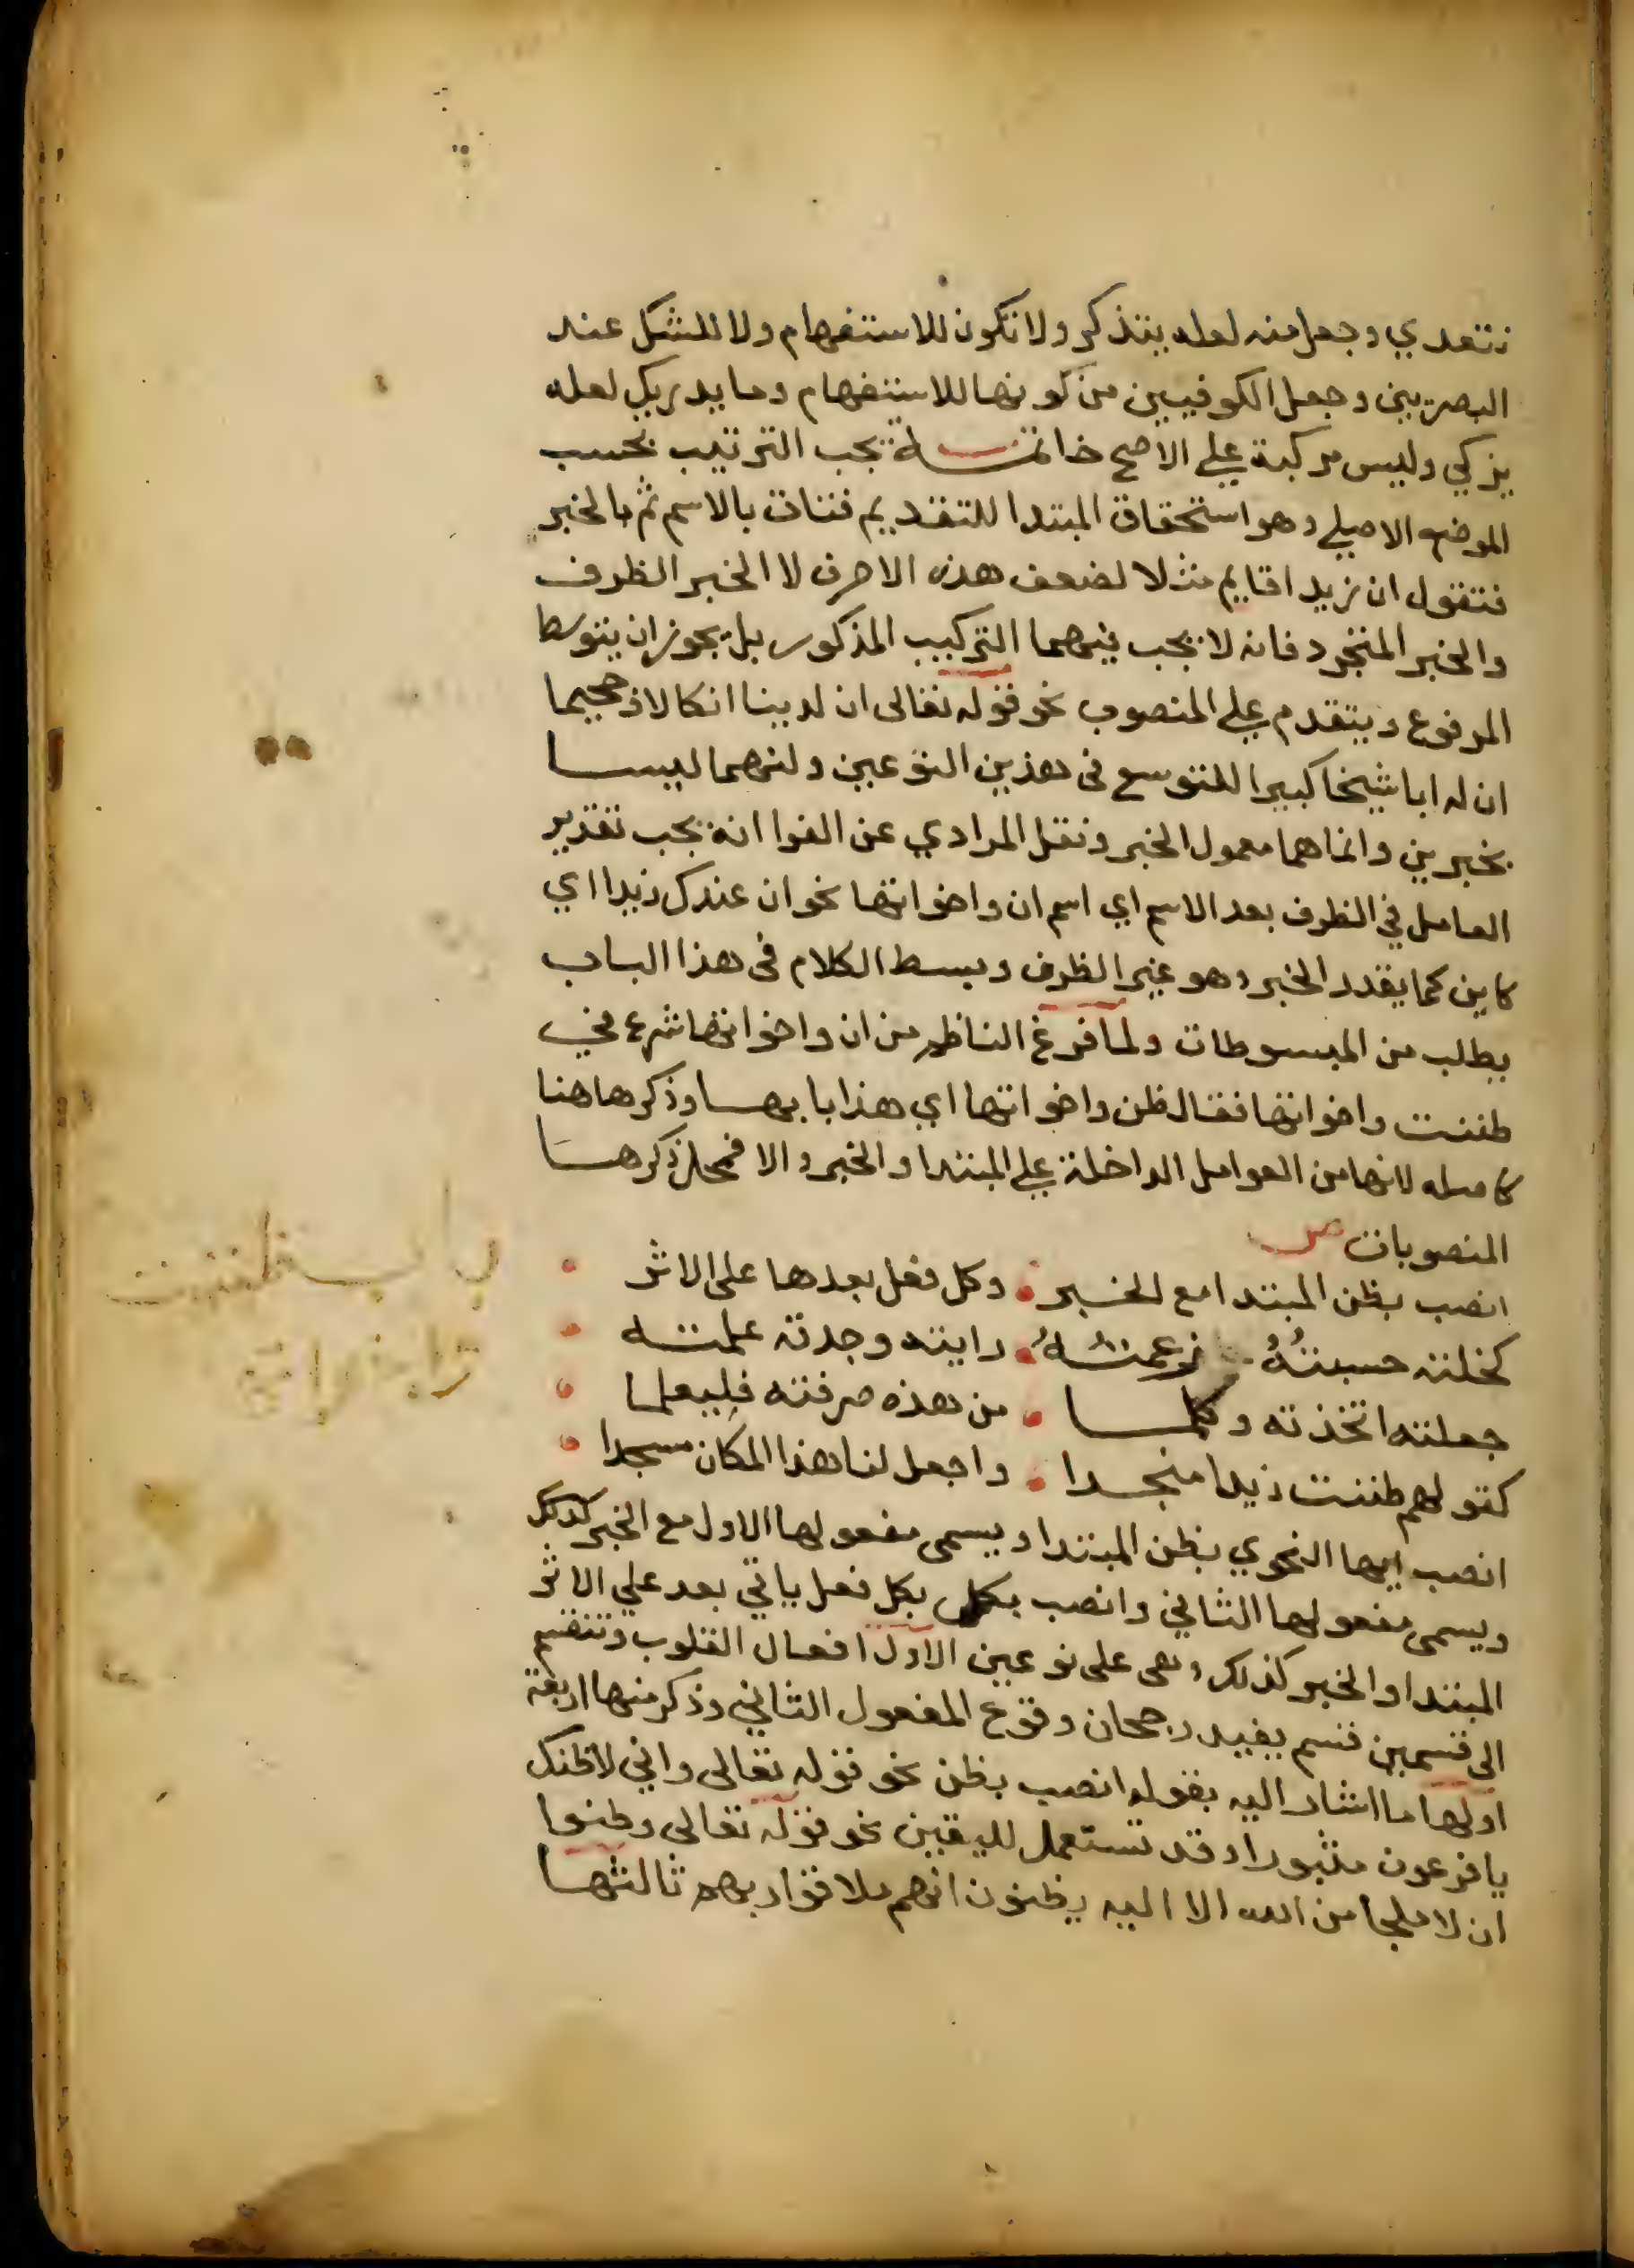 نتغدي وجعل منه لعله يتذكر ولا تكون للاستفهام ولا للشك عند
البصريين وجعل الكوفيين من كونها للاستفهام وما يدريك لعله
يزكي وليس مركبة علي الاصح خاتمة يجب الترتيب بحسب
الموضع الاصلي وهو استحقاق المبتدا للتقديم فتات بالاسم ثم بالخبر
فتقول ان زيدا قايم مثلا لضعف هذه الاحرف لا الخبر الظرف
والخبر المجرور فانه لا يجب فيهما التركيب المذكور بل يجوز ان يتوسط
المرفوع ويتقدم علي المنصوب نحو قوله تعالى ان لدينا انكالا وجحيما
ان له ابا شيخا كبيرا للتوسع في هذين النوعين ولنهما ليسا
بخبرين وانما هما معمول الخبر ونقل المرادي عن الفرا انه يجب تقدير
العامل في الظرف بعد الاسم اي اسم ان واخواتها نحو ان عندك زيدا اي
كاين كما يقدر الخبر وهو غير الظرف وبسط الكلام في هذا الباب
يطلب من المبسوطات ولما فرغ الناظم من ان واخواتها شرع في
ظننت واخواتها فقال ظن واخواتها اي هذا بابها وذكرها هنا
كامله لانها من العوامل الداخلة علي المبتدا والخبر والا فمحل ذكرها
المنصوبات ص
انصب بظن المبتدا مع الخبر وكل فعل بعدها على الاثر
كخلته حسبته زعمته رايته وجدته علمته
جعلته اتخذته وكلما من هذه صرفته فليعلما
كقولهم ظننت زيدا منجدا واجعل لنا هذا المكان مسجدا
انصب ايها النحوي بظن المبتدا ويسمى مفعولها الاول مع الخبر كذلك
ويسمى مفعولها الثاني وانصب بكل فعل ياتي بعد علي الاثر
المبتدا والخبر كذلك وهى على نوعين الاول افعال القلوب وتنقسم
الى قسمين قسم يفيد رجحان وقوع المفعول الثاني وذكر منها اربعة
اولها ما اشار اليه بقوله انصب بظن نحو قوله تعالى واني لاظنك
يا فرعون مثبورا وقد تستعمل لليقين نحو قوله تعالى وظنوا
ان لا ملجا من الله الا اليه يظنون انهم ملاقوا ربهم ثالثها
باب ظننت
واخواتها